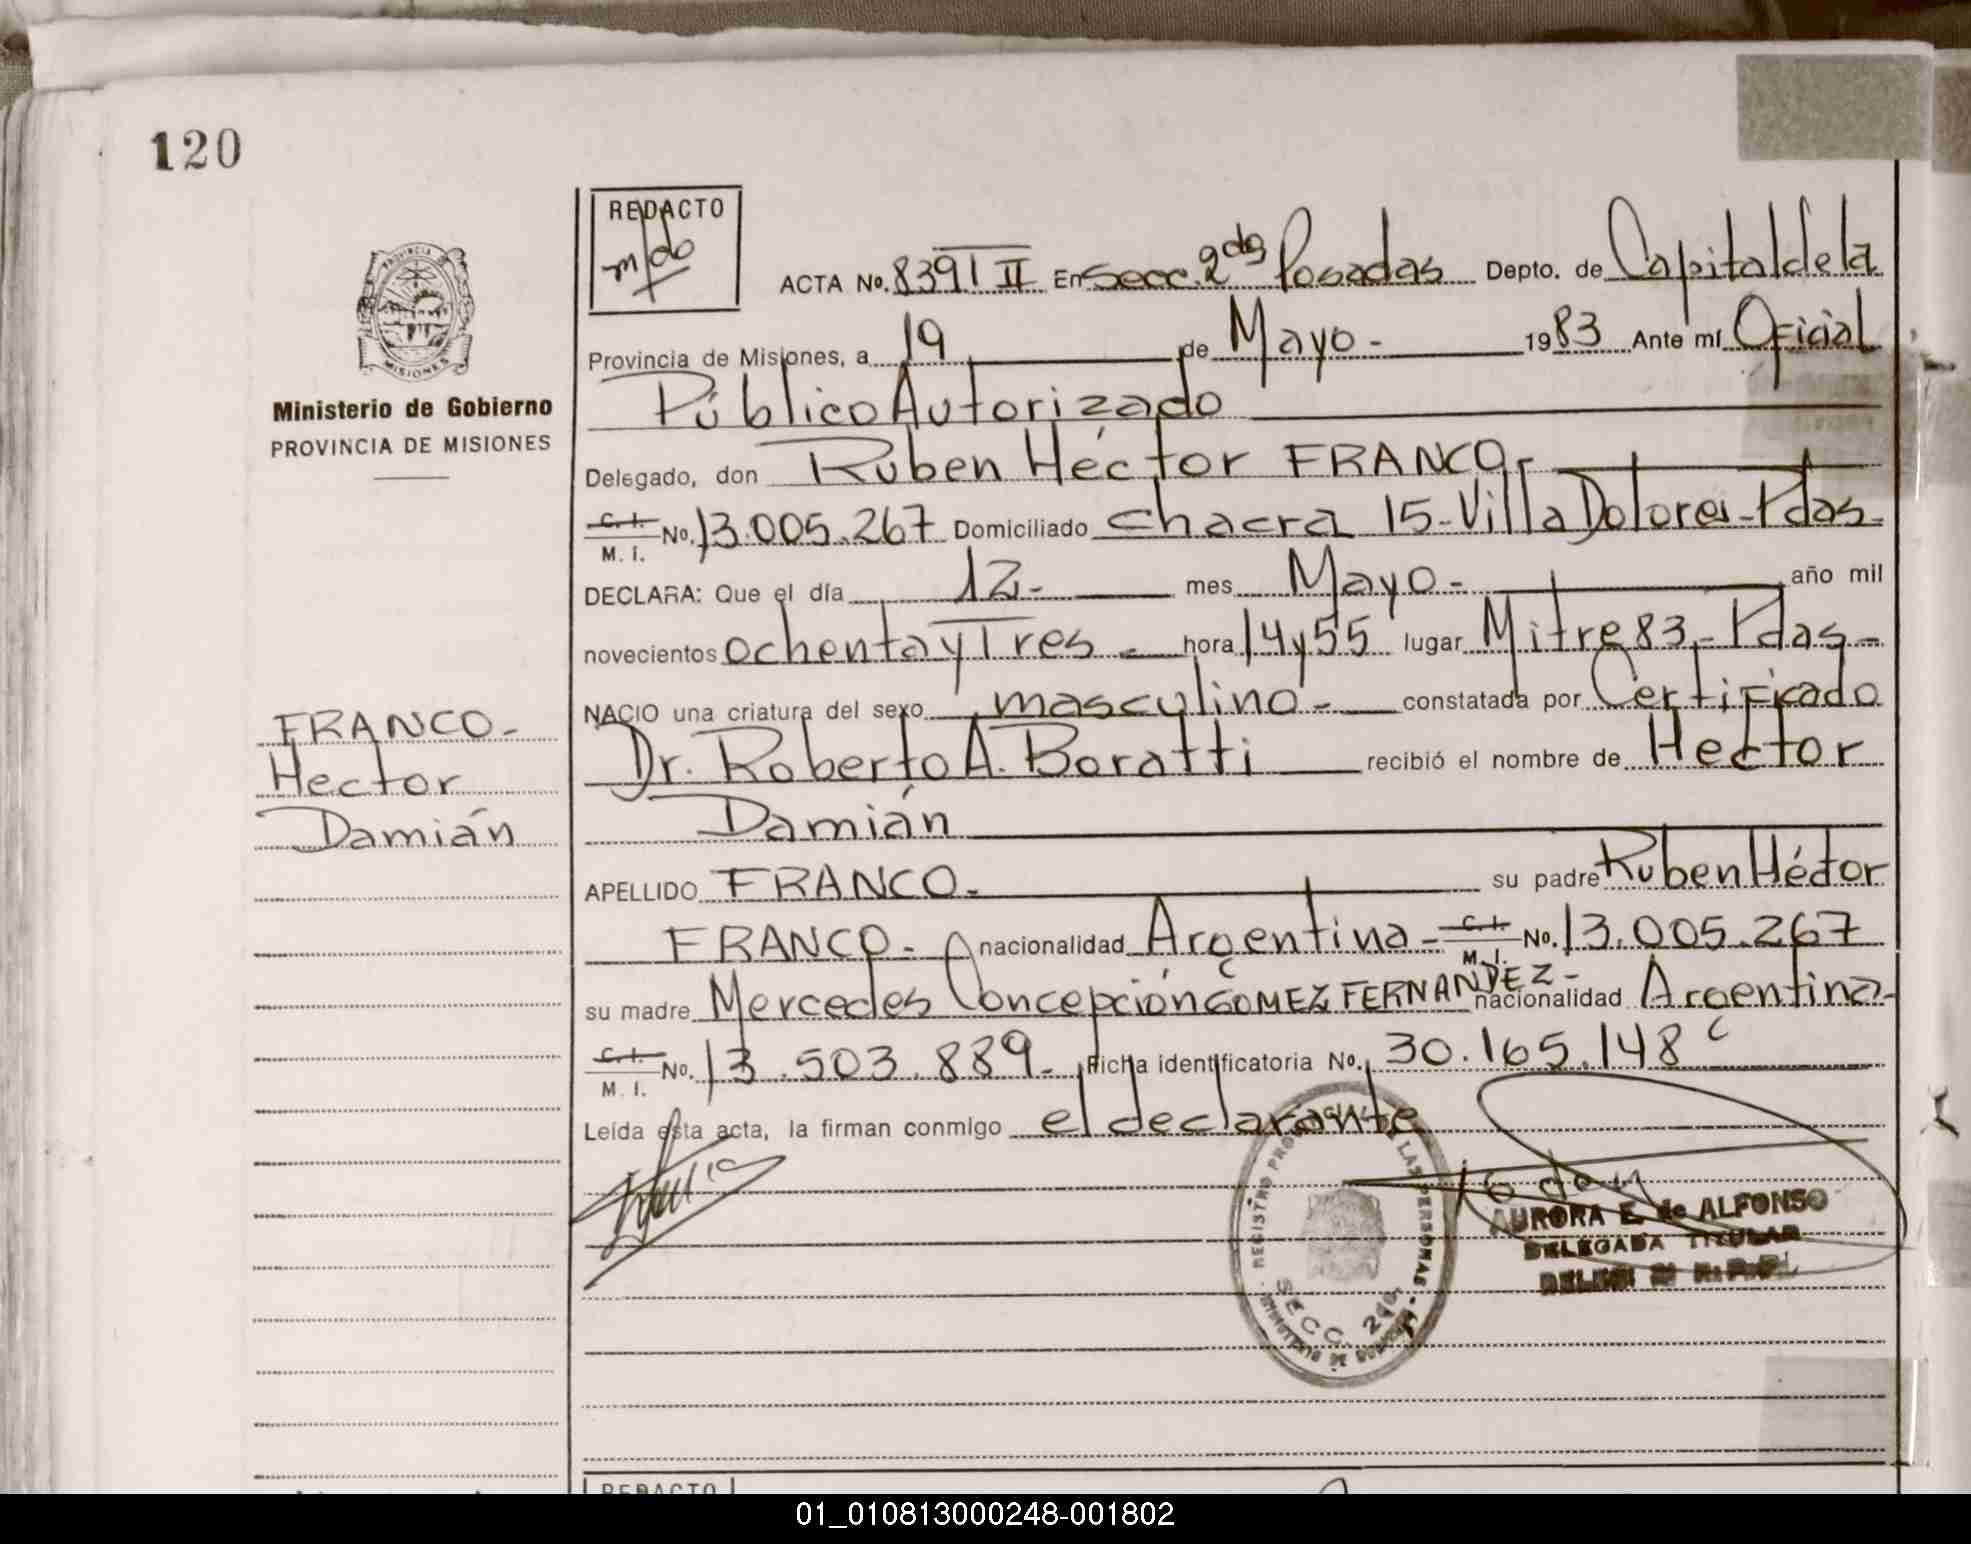 120
REDACTO
m/do
PROVINCIA DE
MISIONES
Ministerio de Gobierno
PROVINCIA DE MISIONES
ACTA No. 839 I II En Secc. 2da Posadas Depto. de Capital de la
Provincia de Misiones, a 19 de Mayo - 1983 Ante mí Oficial
Público Autorizado
Delegado, don Ruben Héctor FRANCO.-
C.I. M.I. No. 13.005.267 Domiciliado chacra 15-Villa Dolores-Pdas-
DECLARA: Que el día 12- mes Mayo- año mil
novecientos ochenta y Tres - hora 14y55 lugar Mitre 83,-Pdas-
NACIO una criatura del sexo masculino- constatada por Certificado
Dr. Roberto A. Boratti recibió el nombre de Hector
Damián
FRANCO-
Hector
Damián
APELLIDO FRANCO- su padre Ruben Héctor
FRANCO- nacionalidad Argentina- C.I. M.I. No. 13.005.267
su madre Mercedes Concepción GOMEZ FERNANDEZ- nacionalidad Argentina-
C.I. M.I. No. 13.503.889- Ficha identificatoria No. 30.165.148
Leída esta acta, la firman conmigo el declarante
REGISTRO PROVINCIAL DE LAS PERSONAS
SECC. 2da.
AURORA E. de ALFONSO
DELEGADA TITULAR
REDACTO
01_010813000248-001802